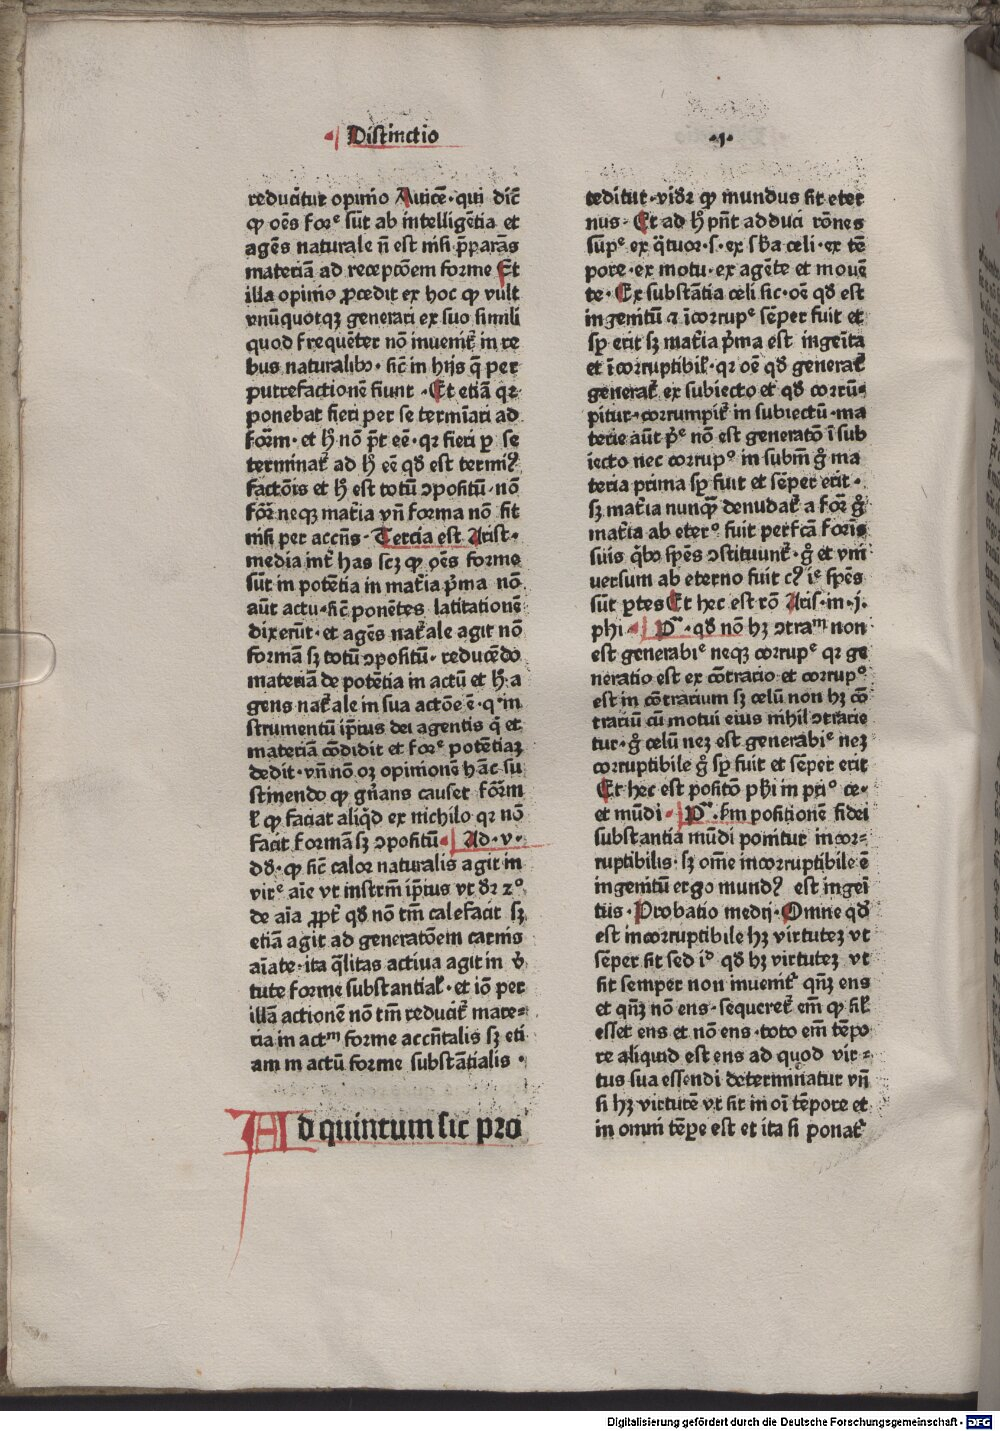 Distinctio
·1·
reduci̅tur opinio Auice̅·qui dic̅
ꝙ oe̅s forᵉ su̅t ab intellige̅tia et
age̅s naturale n̅ est nisi p̅para̅s
materia̅ ad recepto̅em forme Et
illa opinio ꝓcedit ex hoc ꝙ vult
vnu̅quotqꝫ generari ex suo simili
quod freque̅ter no̅ inuenit᷑ in re
bus naturalibꝰ· sic̅ in hijs q̅ per
putrefactione̅ fiunt ·Et etia̅ qꝛ
ponebat fieri per se termi̅ari ad
for̅m· et h̅ no̅ p̅t ee̅·qꝛ fieri ꝑ se
terminat᷑ ad h̅ ee̅ qd̅ est termiꝰ
facto̅is et h̅ est totu̅ ꝯpositu̅·no̅
for̅ neqꝫ mat̅ia vn̅ forma no̅ fit
nisi per accn̅s· Tercia est Arist·
media int᷑ has scꝫ ꝙ oe̅s forme
su̅t in pote̅tia in mat̅ia p̅ma no̅
au̅t actu·sic̅ pone̅tes latitatione̅
dixeru̅t·et age̅s nat᷑ale agit no̅
forma̅ sꝫ totu̅ ꝯpositu̅· reduce̅do
materia̅ de pote̅tia in actu̅ et h̅·a
gens nat᷑ale in sua acto̅e e̅·qᵃin
strumentu̅ ip̅ius dei agentis q̅ et
materia̅ co̅didit et forᵉ pote̅tiaꝫ
dedit·vn̅ no̅ oꝫ opinione̅ ha̅c su
stinendo ꝙ gn̅ans causet for̅m
ꝉ ꝙ faciat aliq̅d ex nichilo qꝛ no̅
facit forma̅ sꝫ ꝯpositu̅ Ad·v·
dd̅·ꝙ sic̅ calor naturalis agit in
virᵉ ai̅e vt instrm̅ ip̅ius vt dꝛ̅ 2º
de ai̅a ꝓpt᷑ qd̅ no̅ tm̅ calefacit sꝫ
etia̅ agit ad generato̅em carnis
ai̅ate·ita q̅litas actiua agit in v̅
tute forme substantial᷑·et io̅ per
illa̅ actione̅ no̅ tm̅ reducit᷑ mate⸗
ria in actᵐ forme accn̅talis sꝫ eti
am in actu̅ forme substa̅tialis ·
Ad quintum sic pro
teditur·vidꝛ̅ ꝙ mundus sit eter
nus· Et ad h̅ pn̅t adduci ro̅nes
su̅pᵉ ex q̅tuor·s·ex sb̅a celi·ex te̅
pore·ex motu·ex age̅te et moue̅
te·Ex substa̅tia celi sic·oe̅ qd̅ est
ingenitu̅ ⁊ i̅corrupᵉ se̅per fuit et
sꝑ erit sꝫ mat̅ia p̅ma est inge̅ita
et i̅corruptibil᷑·qꝛ oe̅ qd̅ generat᷑
generat᷑ ex subiecto et qd̅ corru̅⸗
pitur·corrumpit᷑ in subiectu̅·ma
terie au̅t p̅ᵉ no̅ est generato̅ i̅ sub
iecto nec corrupº in subm̅ g̊ ma
teria prima sꝑ fuit et se̅per erit·
sꝫ mat̅ia nunqꝫ̅ denudat᷑ a for̅ g̊
mat̅ia ab eterº fuit perfc̅a for̅is
suis q̅bꝰ spe̅s ꝯstituunt᷑·g̊ et vni
uersum ab eterno fuit cꝰ iᵉ spe̅s
su̅t ꝑtes Et hec est ro̅ Aris·in·j·
phi· Pᵃ·qd̅ no̅ hꝫ ꝯtraᵐ non
est generabiᵉ neqꝫ corrupᵉ qꝛ ge
neratio est ex co̅trario et corrupº
est in co̅trarium sꝫ celu̅ non hꝫ co̅
trariu̅ cu̅ motui eius nihil ꝯtrarie
tur·g̊ celu̅ neꝫ est generabiᵉ neꝫ
corruptibile g̊ sꝑ fuit et se̅per erit
Et hec est posito̅ ph̅i in priº ce·
et mu̅di· Pᵃ·sm̅ positione̅ fidei
substantia mu̅di ponitur incor⸗
ruptibilis·sꝫ om̅e incorruptibile e̅
ingenitu̅ ergo mundꝰ est ingei̅
tus·Probatio medij·Omne qd̅
est incorruptibile hꝫ virtuteꝫ vt
se̅per sit sed iᵈ qd̅ hꝫ virtuteꝫ vt
sit semper non inuenit᷑ qn̅ꝫ ens
et qn̅ꝫ no̅ ens·sequeret᷑ em̅ ꝙ sil᷑
esset ens et no̅ ens·toto em̅ te̅po
re aliquid est ens ad quod vir⸗
tus sua essendi determinatur vn̅
si hꝫ virtute̅ vt sit in oi̅ te̅pore et
in omni te̅pe est et ita si ponat᷑
Digitalisierung gefördert durch die Deutsche Forschungsgemeinschaft - DFG